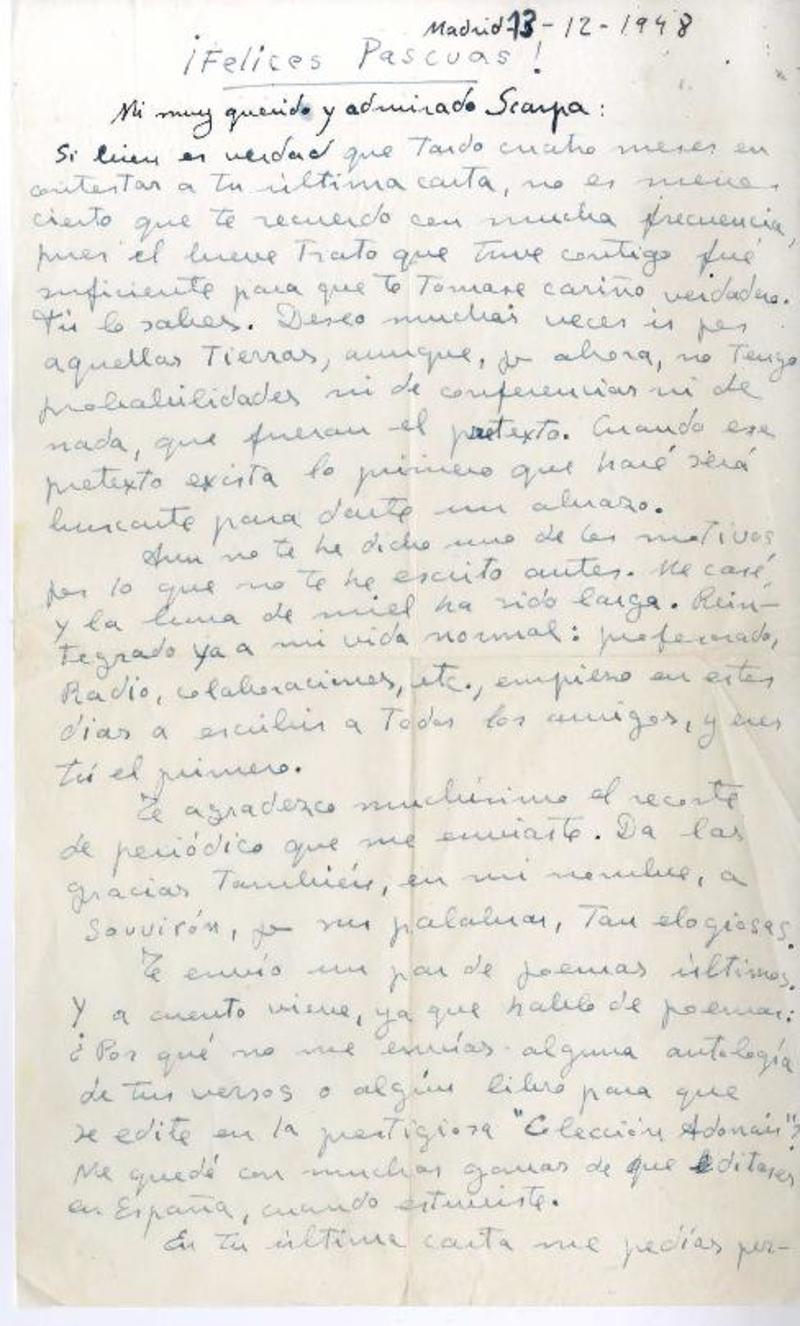 Madrid 13-12-1948
¡Felices Pascuas!
Mi muy querido y admirado Scarpa:
Si bien es verdad que tardo cuatro meses en
contestar a tu última carta, no es menos
cierto que te recuerdo con mucha frecuencia,
pues el breve trato que tuve contigo fué
suficiente para que te tomase cariño verdadero.
Tú lo sabes. Deseo muchas veces ir por
aquellas tierras, aunque, por ahora, no tengo
probabilidades ni de conferencias ni de
nada, que fueran el pretexto. Cuando ese
pretexto exista lo primero que haré será
buscarte para darte un abrazo.
Aun no te he dicho uno de los motivos
por lo que no te he escrito antes. Me casé,
y la luna de miel ha sido larga. Rein-
tegrado ya a mi vida normal: profesorado,
Radio, colaboraciones, etc., empiezo en estos
días a escribir a todos los amigos, y eres
tú el primero.
Te agradezco muchísimo el recorte
de periódico que me enviaste. Da las
gracias también, en mi nombre, a
Souvirón, por sus palabras, tan elogiosas.
Te envío un par de poemas últimos.
Y a cuento viene, ya que hablo de poemas:
¿Por qué no me envías alguna antología
de tus versos o algún libro para que
se edite en la prestigiosa "Colección Adonais"?
Me quedé con muchas ganas de que editases
en España, cuando estuviste.
En tu última carta me pedías per-